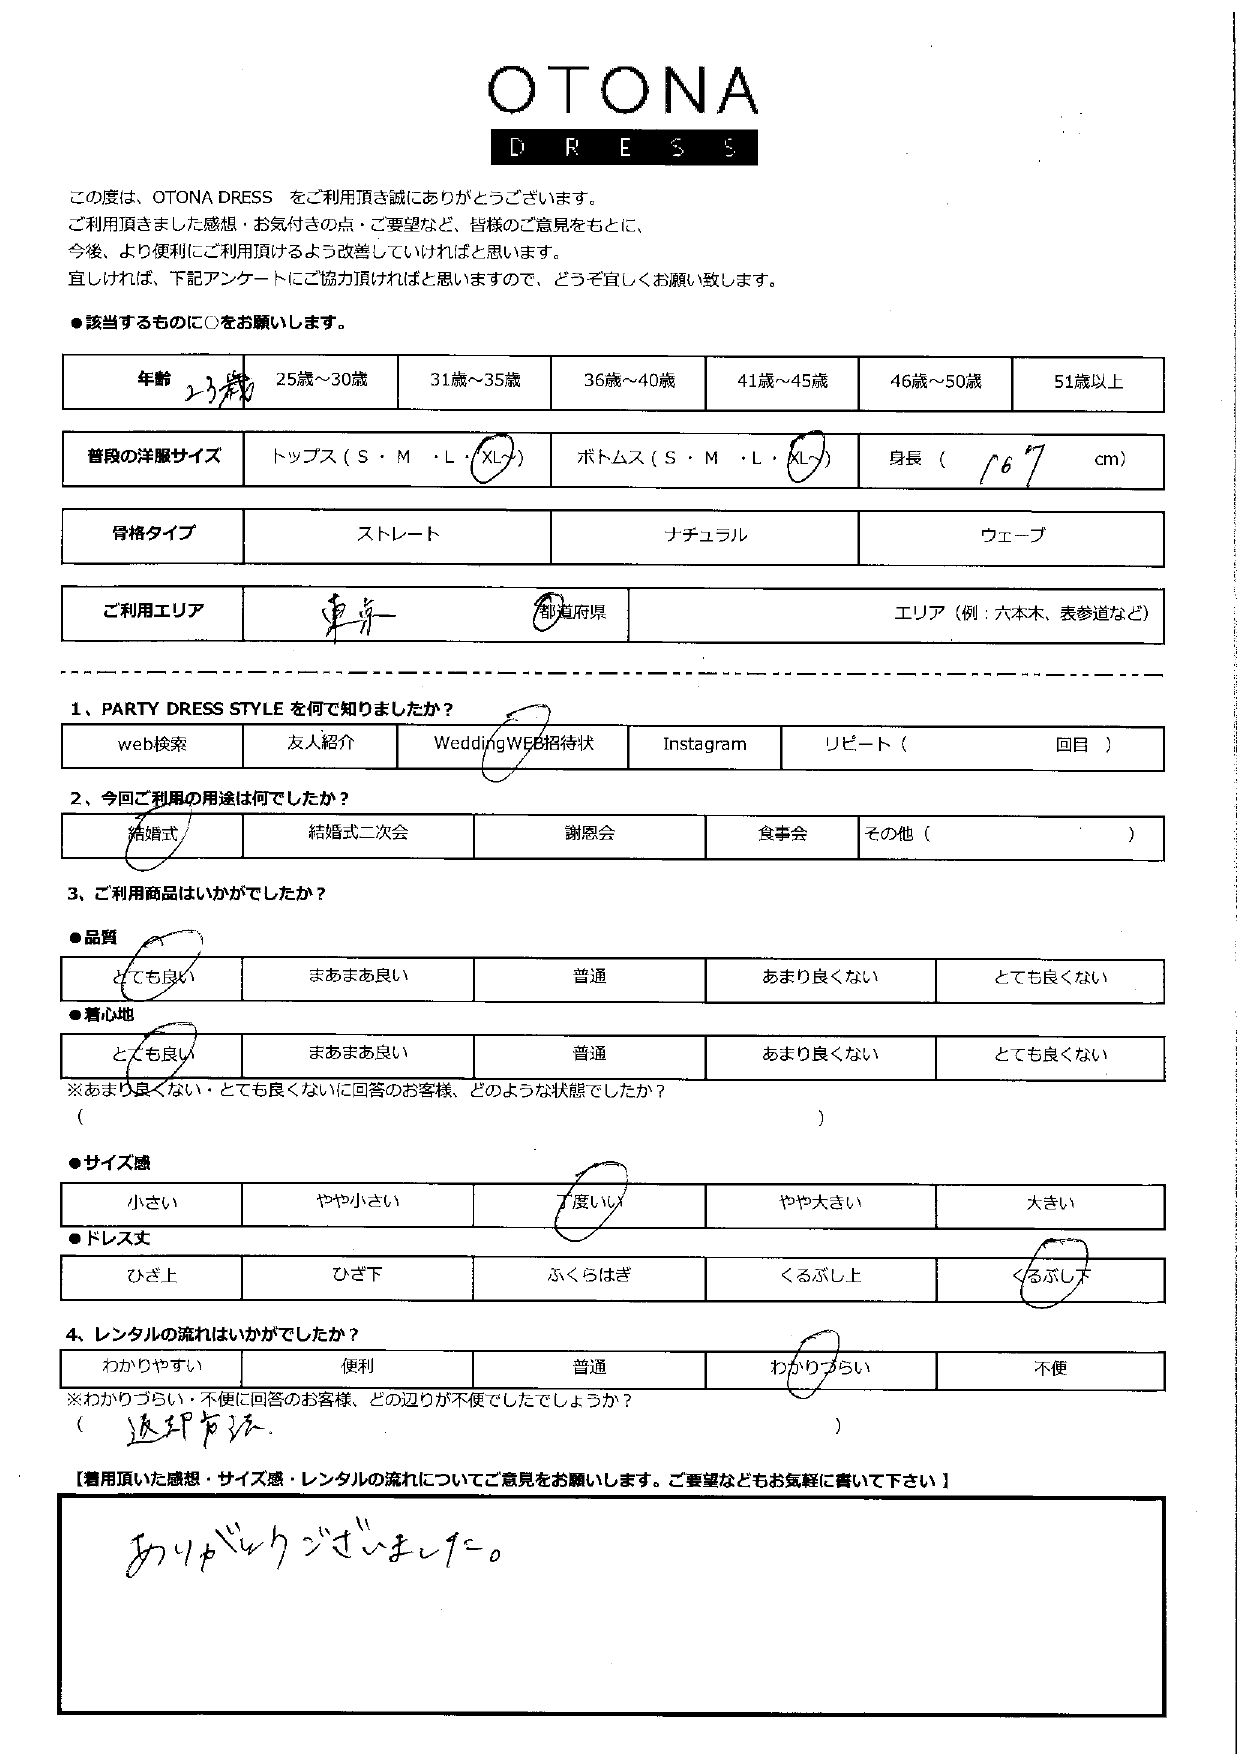 OTONA
DRESS
この度は、OTONA DRESS　をご利用頂き誠にありがとうございます。
ご利用頂きました感想・お気付きの点・ご要望など、皆様のご意見をもとに、
今後、より便利にご利用頂けるよう改善していければと思います。
宜しければ、下記アンケートにご協力頂ければと思いますので、どうぞ宜しくお願い致します。
●該当するものに○をお願いします。
年齢 23歳 25歳～30歳 31歳～35歳 36歳～40歳 41歳～45歳 46歳～50歳 51歳以上
普段の洋服サイズ トップス ( S ・ M ・L ・XL～) ボトムス ( S ・ M ・L ・XL～) 身長 ( 167 cm)
骨格タイプ ストレート ナチュラル ウェーブ
ご利用エリア 東京 都道府県 エリア（例：六本木、表参道など）
1、PARTY DRESS STYLE を何で知りましたか？
web検索 友人紹介 WeddingWEB招待状 Instagram リピート（ 回目 ）
2、今回ご利用の用途は何でしたか？
結婚式 結婚式二次会 謝恩会 食事会 その他（ ）
3、ご利用商品はいかがでしたか？
●品質
とても良い まあまあ良い 普通 あまり良くない とても良くない
●着心地
とても良い まあまあ良い 普通 あまり良くない とても良くない
※あまり良くない・とても良くないに回答のお客様、どのような状態でしたか？
（ ）
●サイズ感
小さい やや小さい 丁度いい やや大きい 大きい
●ドレス丈
ひざ上 ひざ下 ふくらはぎ くるぶし上 くるぶし下
4、レンタルの流れはいかがでしたか？
わかりやすい 便利 普通 わかりづらい 不便
※わかりづらい・不便に回答のお客様、どの辺りが不便でしたでしょうか？
（ 返却方法. ）
【着用頂いた感想・サイズ感・レンタルの流れについてご意見をお願いします。ご要望などもお気軽に書いて下さい 】
ありがとうございました。